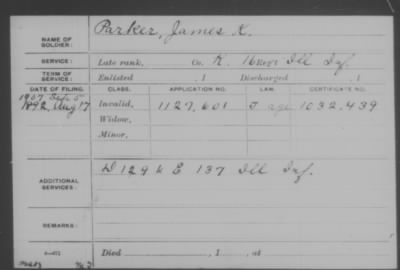 NAME OF SOLDIER: Parker, James K.
SERVICE: Late rank, Co. K, 16 Reg't Ill Inf.
TERM OF SERVICE: Enlisted , 1 Discharged , 1
DATE OF FILING. CLASS. APPLICATION NO. LAW. CERTIFICATE NO.
1907 Sept 5
1892, Aug 17 Invalid, 1127,601 J age 1032,439
Widow,
Minor,
ADDITIONAL SERVICES: D 129 & E 137 Ill Inf.
REMARKS:
Died , 1 , at